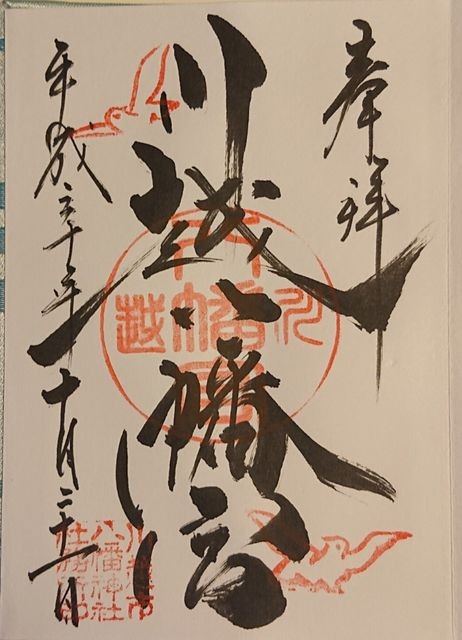 奉拝
川越八幡宮
平成三十年十月二十一日
川越八幡宮
川越市
八幡神社
社務所印